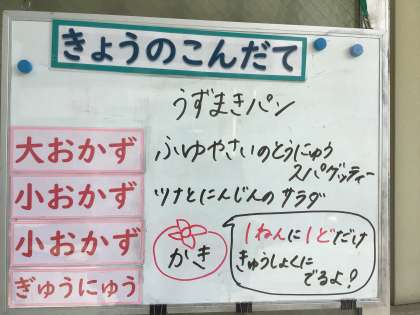 きょうのこんだて
うずまきパン
大おかず
ふゆやさいのとうにゅう
スパゲッティー
小おかず
ツナとにんじんのサラダ
小おかず
かき
1ねんに1どだけ
きゅうしょくに
でるよ!
ぎゅうにゅう